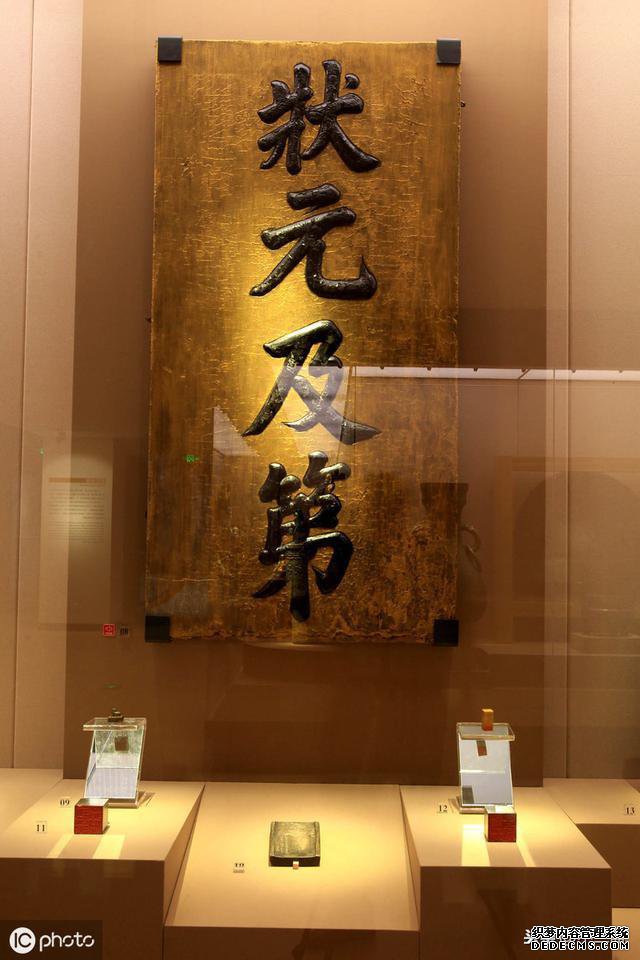 狀元及第
09
11
12
13
IC photo
织梦内容管理系统
DEDECMS.COM